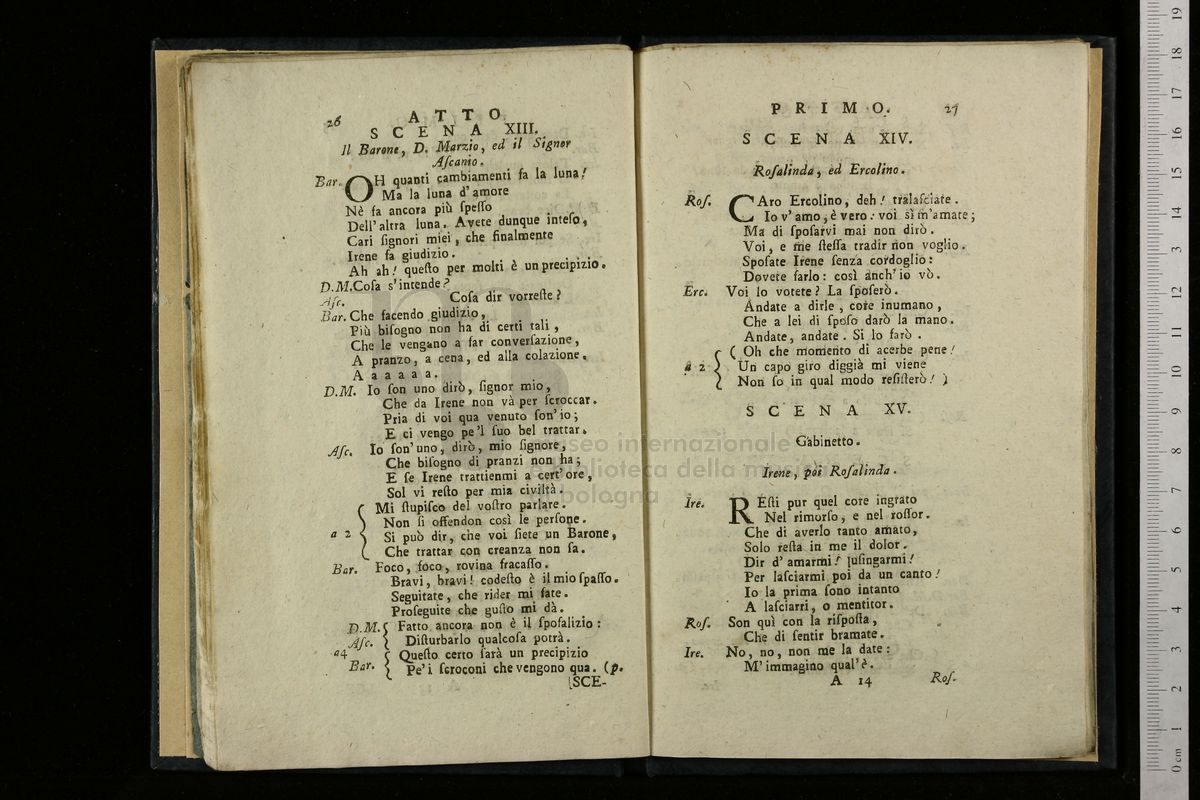 26
ATTO
SCENA XIII.
Il Barone, D. Marzio, ed il Signor
Aſcanio.
Bar. OH quanti cambiamenti fa la luna!
Ma la luna d'amore
Nè fa ancora più ſpeſſo
Dell'altra luna. Avete dunque inteſo,
Cari ſignori miei, che finalmente
Irene fa giudizio.
Ah ah! queſto per molti è un precipizio.
D.M. Coſa s'intende?
Aſc. Coſa dir vorreſte?
Bar. Che facendo giudizio,
Più biſogno non ha di certi tali,
Che le vengano a far converſazione,
A pranzo, a cena, ed alla colazione.
A a a a a a.
D.M. Io ſon uno dirò, ſignor mio,
Che da Irene non và per ſcroccar.
Pria di voi qua venuto ſon'io;
E ci vengo pe'l ſuo bel trattar.
Aſc. Io ſon'uno, dirò, mio ſignore,
Che biſogno di pranzi non ha;
E ſe Irene trattienmi a cert'ore,
Sol vi reſto per mia civiltà.
Mi ſtupiſco del voſtro parlare.
Non ſi offendon così le perſone.
a 2 Si può dir, che voi ſiete un Barone,
Che trattar con creanza non ſa.
Bar. Foco, foco, rovina fracaſſo.
Bravi, bravi! codeſto è il mio ſpaſſo.
Seguitate, che rider mi fate.
Proſeguite che guſto mi dà.
D.M. Fatto ancora non è il ſpoſalizio:
Aſc. Diſturbarlo qualcoſa potrà.
a4 Queſto certo ſarà un precipizio
Bar. Pe'i ſcroconi che vengono qua. (p.
[SCE-
PRIMO. 27
SCENA XIV.
Roſalinda, ed Ercolino.
Roſ. CAro Ercolino, deh! tralaſciate.
Io v'amo, è vero: voi sì m'amate;
Ma di ſpoſarvi mai non dirò.
Voi, e me ſteſſa tradir non voglio.
Spoſate Irene ſenza cordoglio:
Dovete farlo: così anch'io vò.
Erc. Voi lo votete? La ſpoſerò.
Andate a dirle, core inumano,
Che a lei di ſpoſo darò la mano.
Andate, andate. Si lo farò.
( Oh che momento di acerbe pene!
a 2 Un capo giro diggià mi viene
Non ſo in qual modo reſiſterò! )
SCENA XV.
Gabinetto.
Irene, poi Roſalinda.
Ire. REſti pur quel core ingrato
Nel rimorſo, e nel roſſor.
Che di averlo tanto amato,
Solo reſta in me il dolor.
Dir d'amarmi! luſingarmi!
Per laſciarmi poi da un canto!
Io la prima ſono intanto
A laſciarri, o mentitor.
Roſ. Son quì con la riſpoſta,
Che di ſentir bramate.
Ire. No, no, non me la date:
M'immagino qual'è.
A 14 Roſ.
museo internazionale
e biblioteca della musica
bologna
0 cm 1 2 3 4 5 6 7 8 9 10 11 12 13 14 15 16 17 18 19